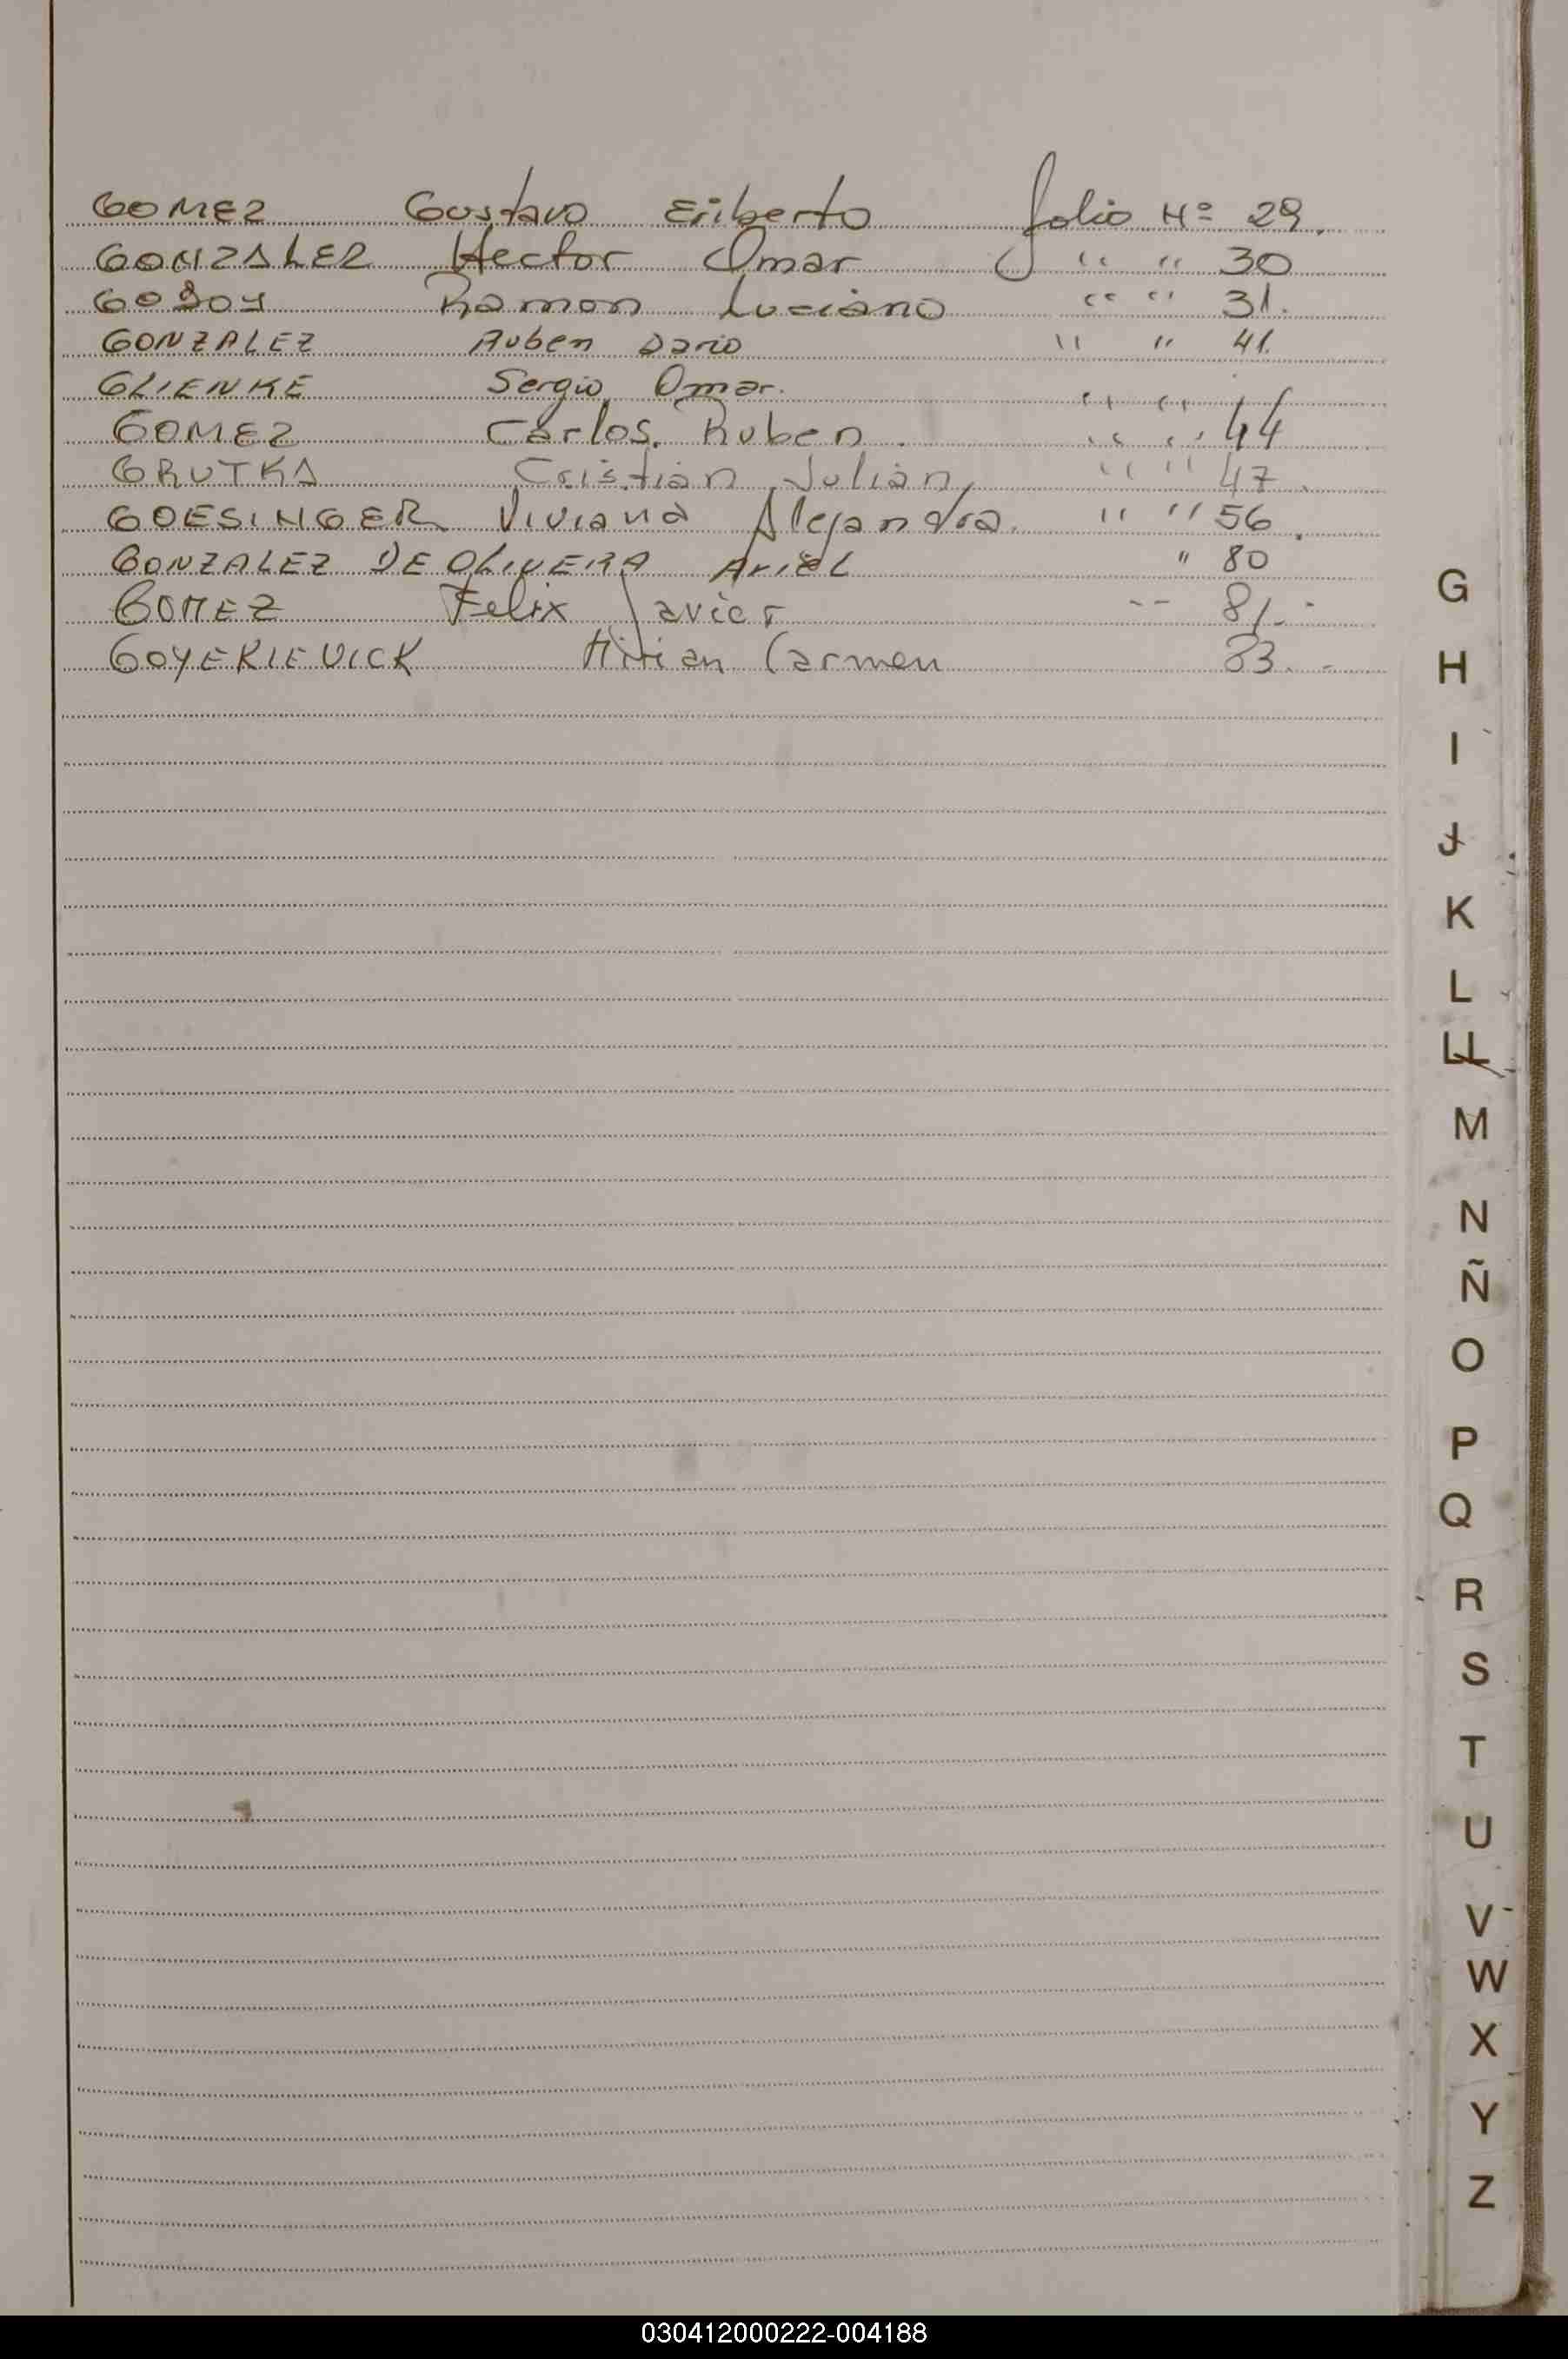 GOMEZ Gustavo Eriberto folio Nº 29.
GONZALEZ Hector Omar " " 30
GODOY Ramon Luciano " " 31.
GONZALEZ Ruben Dario " " 41.
GLIENKE Sergio Omar. " "
GOMEZ Carlos Ruben. " " 44
GRUTKA Cristian Julian " " 47.
GOESINGER Viviana Alejandra. " " 56.
GONZALEZ DE OLIVERA Ariel " 80
GOMEZ Felix Javier -- 81.-
GOYEKIEVICK Mirian Carmen 83.-
G
H
I
J
K
L
LL
M
N
Ñ
O
P
Q
R
S
T
U
V
W
X
Y
Z
030412000222-004188